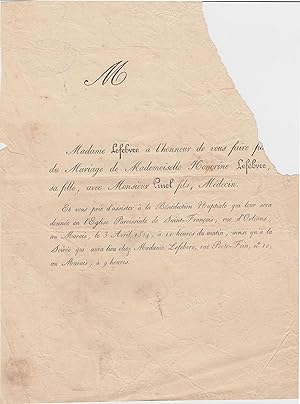 M
Madame Lefebvre a l'honneur de vous faire pa
du Mariage de Mademoiselle Honorine Lefebvre,
sa fille, avec Monsieur Pinel fils, Médecin.
Et vous prie d'assister à la Bénédiction Nuptiale qui leur sera
donnée en l'Eglise Paroissiale de Saint-François, rue d'Orléans,
au Marais, le 3 Avril 1824, à 11 heures du matin, ainsi qu'à la
Soirée qui aura lieu chez Madame Lefebvre, rue Porte-Foin, n.° 10,
au Marais, à 9 heures.